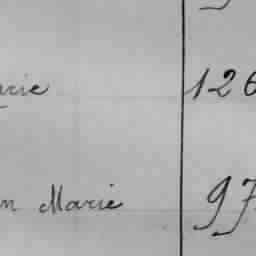 arie 126
n Marie 97